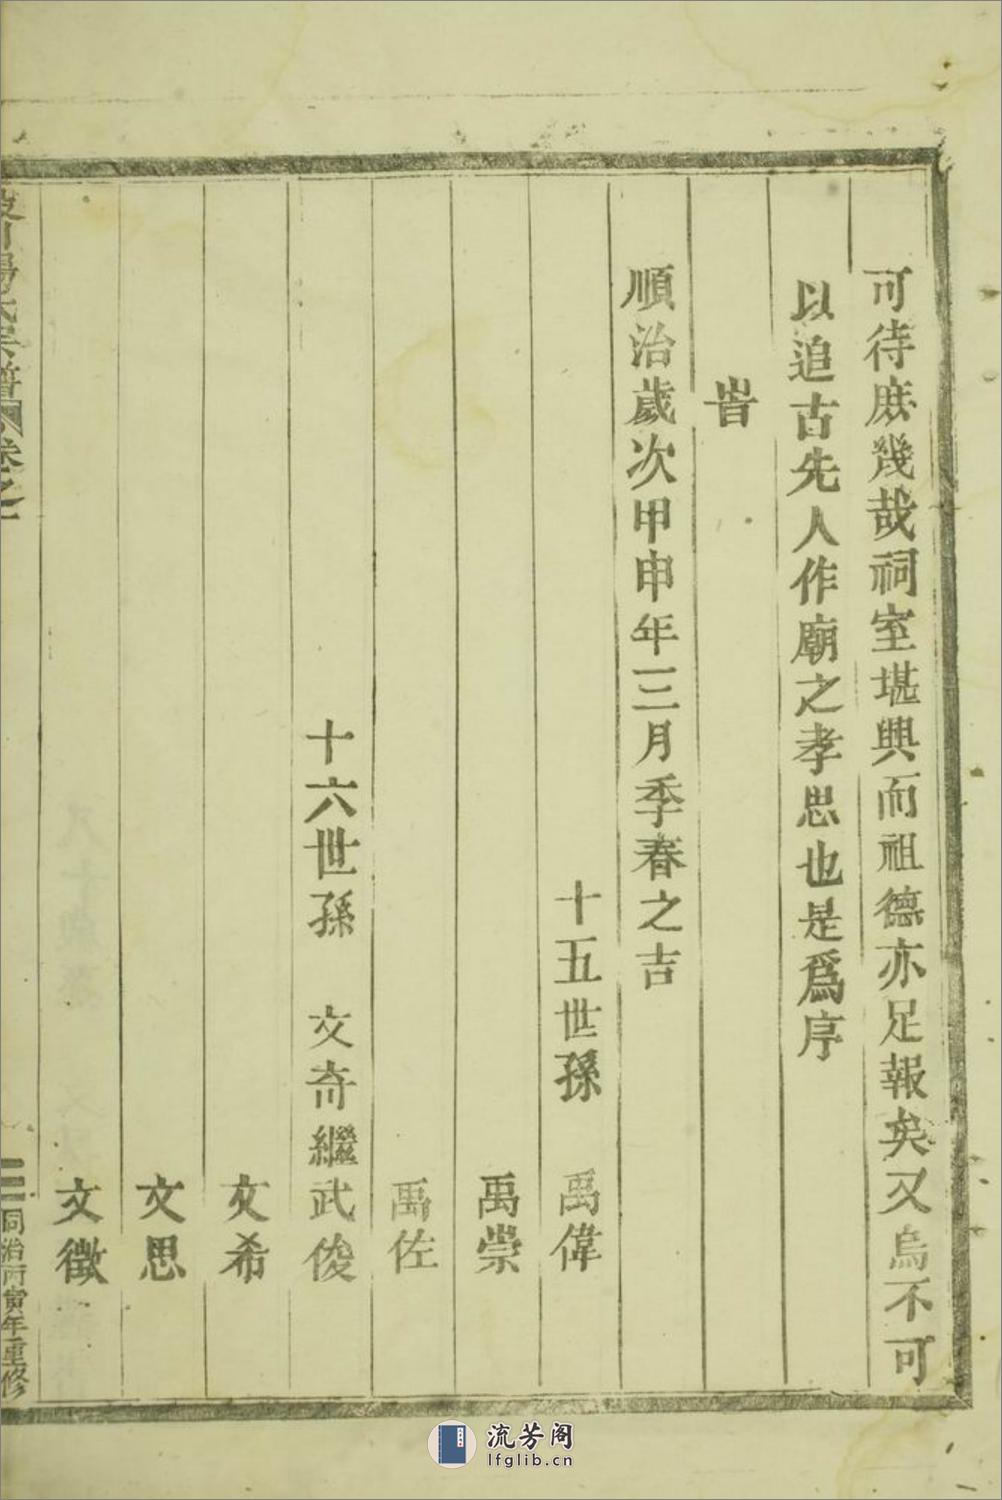 可待庶幾哉祠室堪興而祖德亦足報矣又烏不可
以追古先人作廟之孝思也是爲序
旹
順治歲次甲申年三月季春之吉
十五世孫 禹偉
禹崇
禹佐
十六世孫 文奇繼武俊
文希
文思
文徵
氏宗譜 卷之一
三 同治丙寅年重修
流芳阁
lfglib.cn